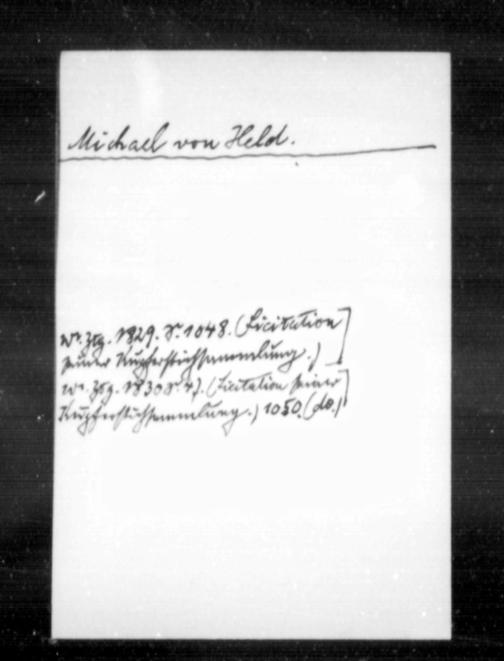 Michael von Held.
Wr. Ztg. 1829. S. 1048. (Licitation
seiner Kupferstichsammlung.)
Wr. Ztg. 1830 S. 47. (Licitation seiner
Kupferstichsammlung.) 1050 (do.)